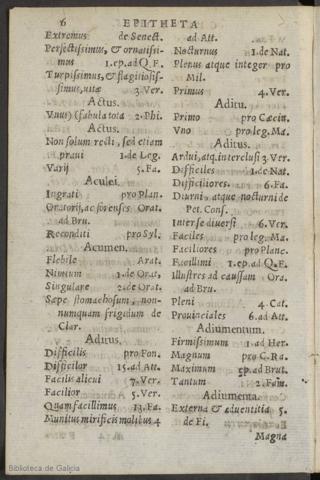 6 EPITHETA
Extremus de Senect.
Perfectissimus, & ornatissi-
mus 1.ep.ad Q.F.
Turpissimus, & flagitiosis-
simus, uitæ 3.Ver.
Actus.
Vnus) (fabula tota 2.Phi.
Actus.
Non solum recti, sed etiam
praui 1.de Leg.
Varij 5.Fa.
Aculei.
Ingrati pro Plan.
Oratorij, ac forenses Orat.
ad Bru.
Reconditi pro Syl.
Acumen.
Flebile Arat.
Nimium 1.de Orat,
Singulare 2.de Orat.
Sæpe stomachosum, non-
nunquam frigidum de
Clar.
Aditus.
Difficilis pro Fon.
Difficilor 15.ad Att.
Facilis alicui 7.Ver.
Facilior 5.Ver.
Quam facillimus 13.Fa.
Munitus mirificis molibus 4
ad Att.
Nocturnus 1.de Nat.
Plenus atque integer pro
Mil.
Primus 4.Ver.
Aditu.
Primo pro Cæcin.
Vno pro leg.Ma.
Aditus.
Ardui, atq. interclusi 3.Ver.
Difficiles 1.de Nat.
Difficiliores. 6.Fa.
Diurni, atque nocturni de
Pet.Cons.
Inter se diuersi 6.Ver.
Faciles pro leg. Ma.
Faciliores pro Planc.
Facillimi 1.ep.ad Q.F.
Illustres ad caussam Ora.
ad Bru.
Pleni 4.Cat.
Prouinciales 6.ad Att.
Adiumentum.
Firmissimum 1.ad Her.
Magnum pro C.Ra.
Maximum ep.ad Brut.
Tantum 2.Fam.
Adiumenta.
Externa & aduentitia 5.
de Fi.
Magna
Biblioteca de Galicia